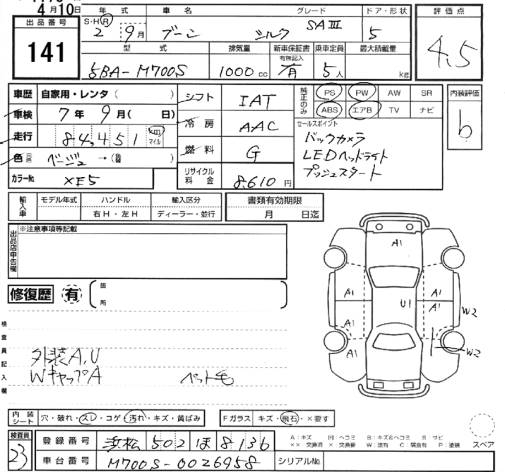 4月10日
出品番号
141
S・H・R 年式 車名 グレード ドア・形状
2 9月 ブーン シルク SAⅢ 5
型式 排気量 新車保証書 有無記入 乗車定員 最大積載量
5BA-M700S 1000cc 有 5人 kg
評価点
4.5
車歴 自家用・レンタ( ) シフト IAT
車検 7年9月( 日) 冷房 AAC
走行 84,451 km マイル 燃料 G
色 ベージュ→( ) リサイクル料金 8610円
カラーNo. XE5
純正のみ PS PW AW SR
ABS エアB TV ナビ
セールスポイント
バックカメラ
LEDヘッドライト
プッシュスタート
内装評価
b
輸入車 モデル年式 ハンドル 輸入区分 書類有効期限
右H・左H ディーラー・並行 月 日迄
出品店申告欄 ※注意事項等記載
修復歴 有 箇所
検査員記入欄
外装A,U
WキャップA ペット毛
A1
A1 A1 U1 A1 W2
A1 A1 W2
A1
内装シート 穴・破れ・スレ・コゲ・汚れ・キズ・黄ばみ Fガラス キズ・飛石・×要す
検査員 23
登録番号 浜松 502 ほ 8136
車台番号 M700S-0026958 シリアルNo.
スペア